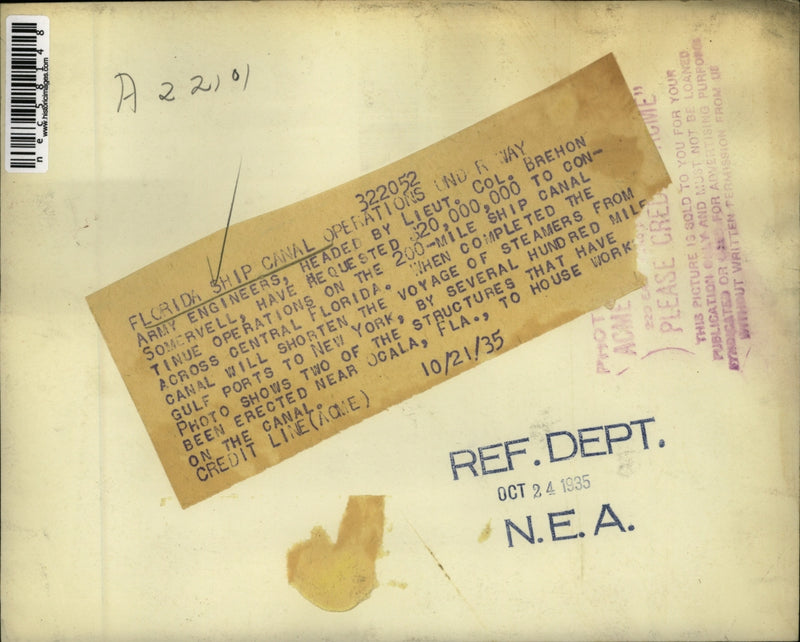 nec58148
www.historicimages.com
A 22101
322052
FLORIDA SHIP CANAL OPERATIONS UNDER WAY
ARMY ENGINEERS, HEADED BY LIEUT. COL. BREHON
SOMERVELL, HAVE REQUESTED $20,000,000 TO CON-
TINUE OPERATIONS ON THE 200-MILE SHIP CANAL
ACROSS CENTRAL FLORIDA. WHEN COMPLETED THE
CANAL WILL SHORTEN THE VOYAGE OF STEAMERS FROM
GULF PORTS TO NEW YORK, BY SEVERAL HUNDRED MILE
PHOTO SHOWS TWO OF THE STRUCTURES THAT HAVE
BEEN ERECTED NEAR OCALA, FLA., TO HOUSE WORK
ON THE CANAL.
CREDIT LINE (ACME) 10/21/35
PHOTO
"ACME
220 E
PLEASE CREDIT "ACME"
THIS PICTURE IS SOLD TO YOU FOR YOUR
PUBLICATION ONLY AND MUST NOT BE LOANED,
SYNDICATED OR USED FOR ADVERTISING PURPOSES
WITHOUT WRITTEN PERMISSION FROM US
REF. DEPT.
OCT 24 1935
N.E.A.